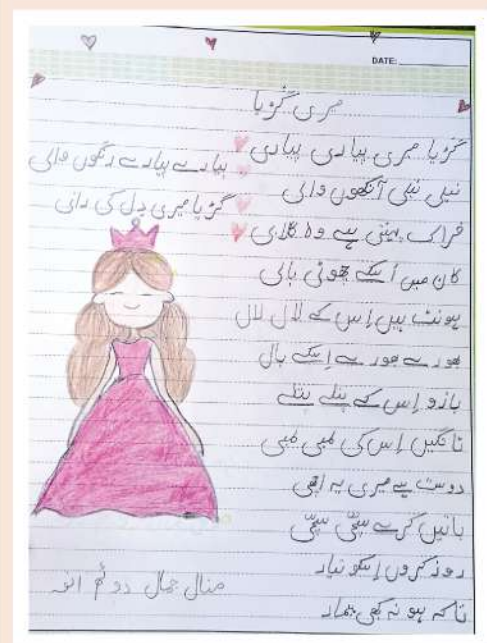 DATE:
میری گڑیا
گڑیا میری پیاری پیاری
پیارے پیارے رنگوں والی
نیلی نیلی آنکھوں والی
گڑیا میری دِل کی رانی
فراک پہنتی ہے وہ گلابی
کان میں اُسکے چھوٹی بالی
ہونٹ ہیں اِس کے لال لال
بھورے بھورے اِسکے بال
بازو اِس کے پتلے پتلے
ٹانگیں اِس کی لمبی لمبی
دوست ہے میری یہ اچھی
باتیں کرے سچّی سچّی
روز کروں اِسکو تیار
تاکہ ہو نہ کبھی بیمار
منال جمال دوئم